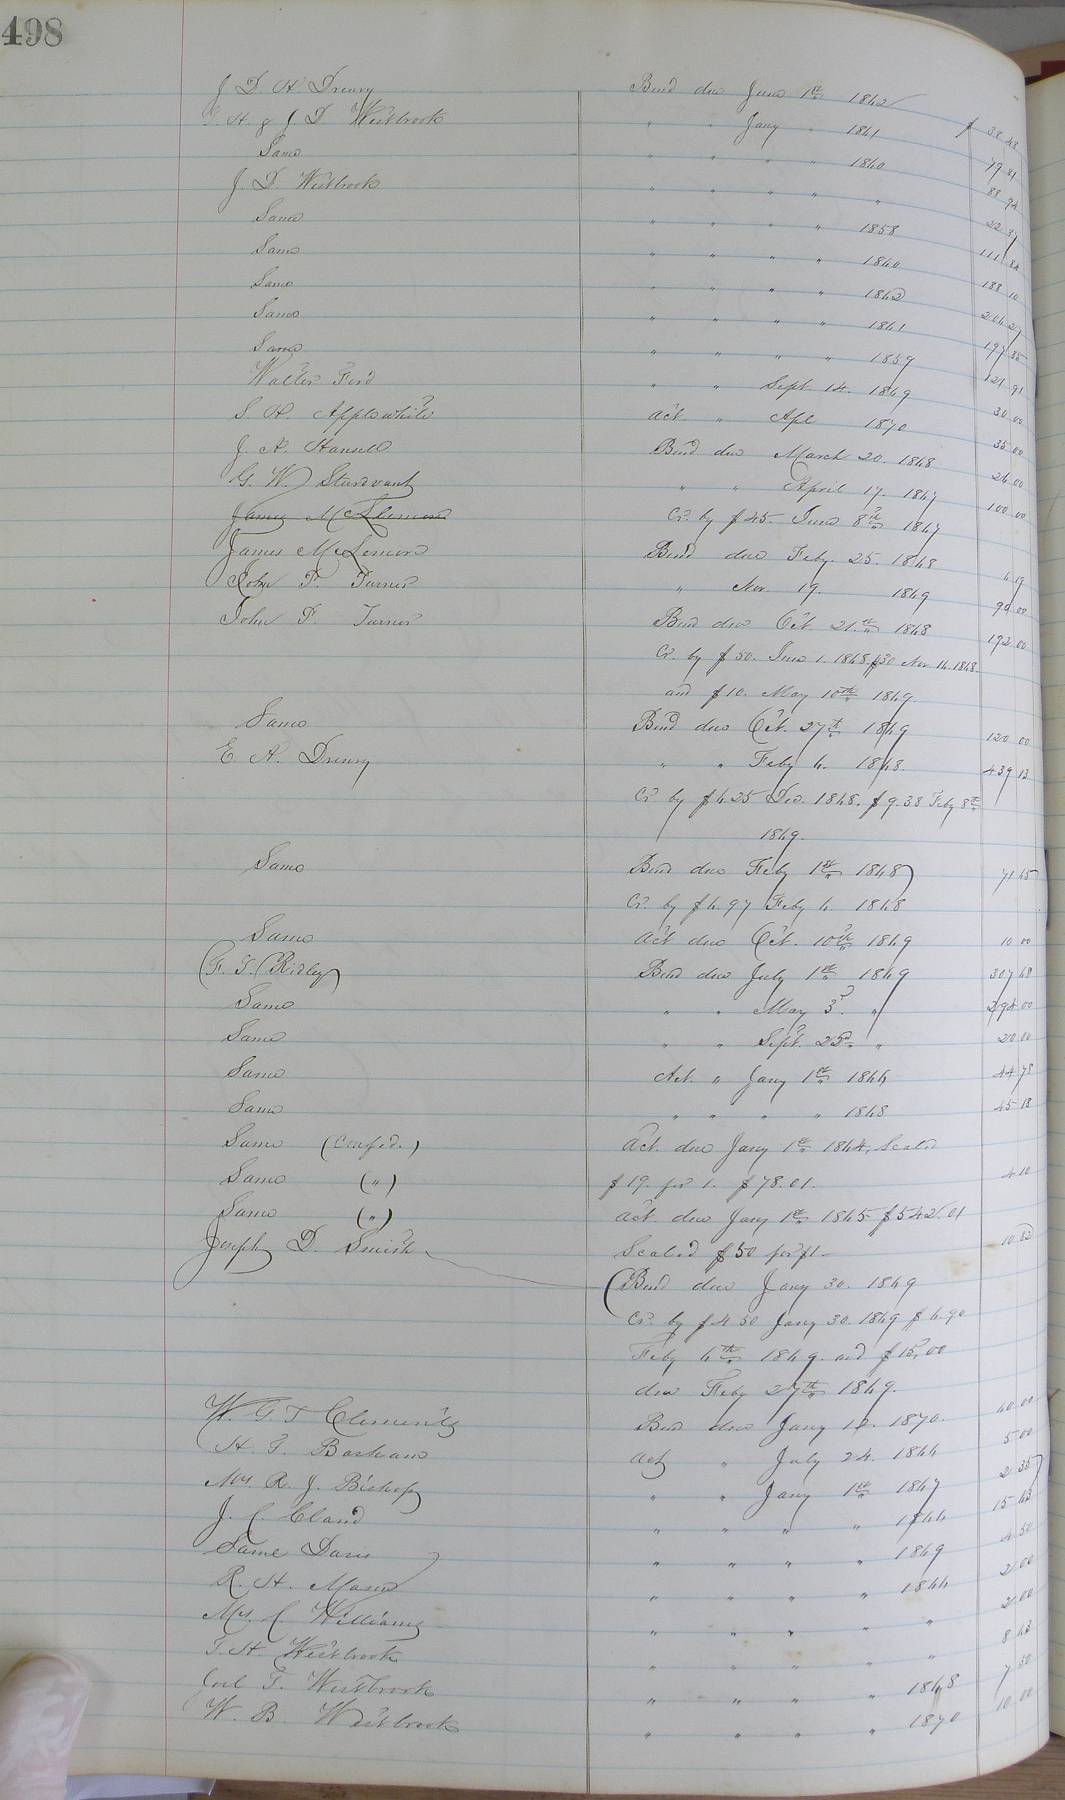 498
J. D. H. Drewry Bond due June 1st 1862
T. H. & J. D. Westbrook " " Jany " 1861 $ 38 48
Same " " " " 1860 79 81
J. D. Westbrook " " " " " 88 94
Same " " " " 1858 22 37
Same " " " " 1860 111 84
Same " " " " 1862 188 10
Same " " " " 1861 206 27
Same " " " " 1859 197 85
Walter Ford " " Sept. 14. 1869 121 91
S. H. Applewhite Act " Apl 1870 30 00
J. A. Hansell Bond due March 20. 1868 35 00
G. W. Sturdvant " " April 17. 1867 26 00
James McLemore Cr. by $45. June 8th 1867 100 00
James McLemore Bond due Feby. 25. 1868
John F. Turner " Nov. 19. 1869 6 19
John F. Turner Bond due Oct. 21st 1868 94 00
Cr. by $50. June 1. 1868 $30 Nov 16. 1868. 192 00
and $10. May 10th 1869.
Same Bond due Oct. 27th 1869
E. A. Drewry " " Feby 6. 1868. 120 00
Cr by $625 Dec. 1868. $9.38 Feby 8th 439 13
1869.
Same Bond due Feby 1st 1868 71 65
Cr. by $6.97 Feby 6. 1868
Same Act due Oct. 10th 1869 10 00
F. T. Ridley Bond due July 1st 1869 307 68
Same " " May 3d. " 294 00
Same " " Sept. 25th " 20 00
Same Act. " Jany 1st 1866 44 78
Same " " " " 1868 45 18
Same (Confed.) Act. due Jany 1st 1864, Scaled
Same (") $19. for 1. $78.01. 4 10
Same (") Act. due Jany 1st 1865 $542.01
Joseph D. Smith Scaled $50 for $1- 10 82
Bond due Jany 30. 1869
Cr. by $4 50 Jany 30. 1869 $6.90
Feby 6th 1869. and $15.00
due Feby 27th 1869.
W. G. T Clements Bond due Jany 12. 1870. 60 00
H. T. Barham Act " July 24. 1866 5 00
Mrs. R. J. Bishop " " Jany 1st 1867 2 35
J. C. Bland " " " " 1866 15 63
Same Davis " " " " 1869 4 50
R. H. Mason " " " " 1866 2 00
Mrs. C. Williams " " " " " 2 00
T. H. Westbrook " " " " " 8 63
Joel T. Westbrook " " " " 1868 7 50
W. B. Westbrook " " " " 1870 10 00